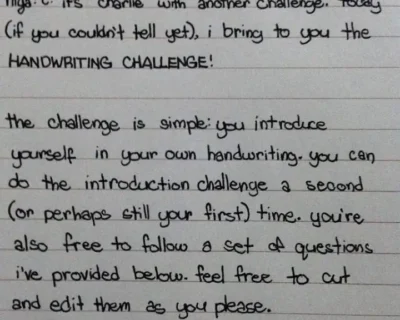 hiya. c: it's charlie with another challenge. today
(if you couldn't tell yet), i bring to you the
HANDWRITING CHALLENGE!
the challenge is simple: you introduce
yourself in your own handwriting. you can
do the introduction challenge a second
(or perhaps still your first) time. you're
also free to follow a set of questions
i've provided below. feel free to cut
and edit them as you please.